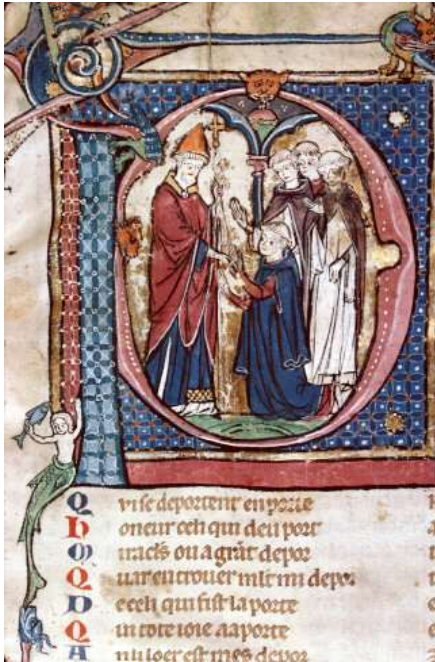 Q vi se deportent en porte
H oneur celi qui deu port
M iracls ou a grãt depor
Q uar en trouer mlt mi depor
D e celi qui fist la porte
Q ui tote ioie aaporte
A nuloer est mes depor